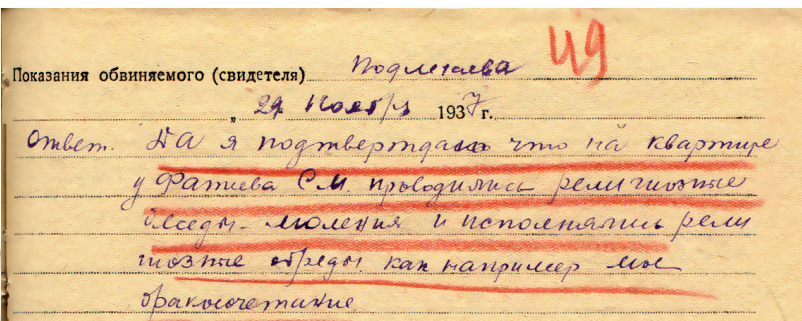 49
Показания обвиняемого (свидетеля) Подметаева
„ 29 Ноября 1937 г.
Ответ. ДА я подтвертдаю что на квартире
у Фатиева СМ проводились религиозные
беседы - моления и исполнялись рели
гиозные обреды как например мое
бракосочетание